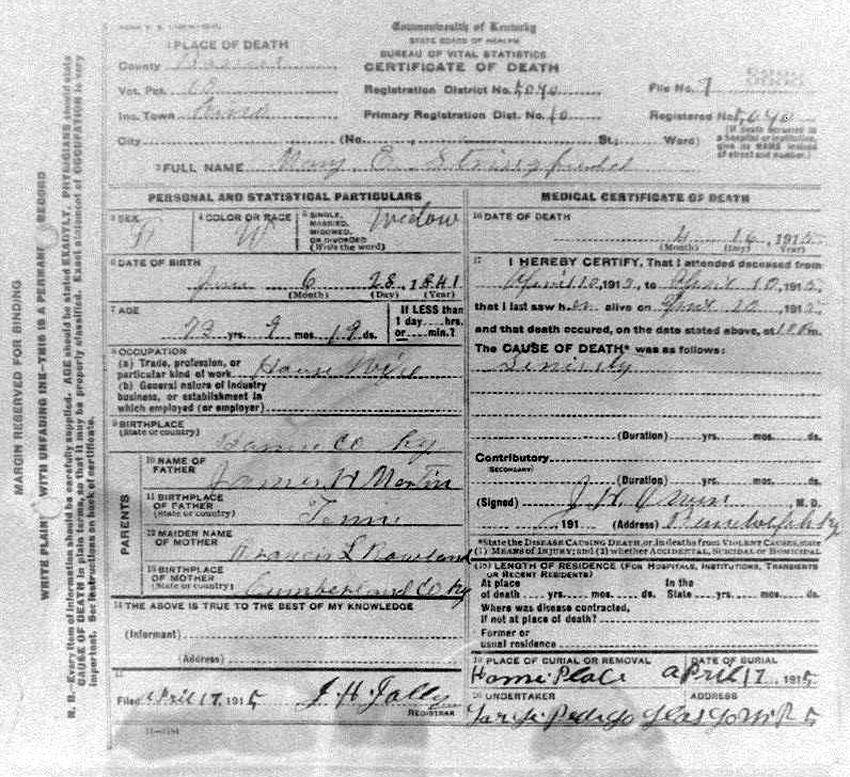 Commonwealth of Kentucky
STATE BOARD OF HEALTH
BUREAU OF VITAL STATISTICS
CERTIFICATE OF DEATH
1 PLACE OF DEATH
County
Vot. Pct.
Ins. Town
Registration District No. 5040
File No. 9
Primary Registration Dist. No. 10
Registered No. 5040
(If death occurred in a hospital or institution, give its NAME instead of street and number.)
City (No. St.; Ward)
2 FULL NAME Mary E. Stringfield
PERSONAL AND STATISTICAL PARTICULARS
3 SEX F
4 COLOR OR RACE W
5 SINGLE, MARRIED, WIDOWED, OR DIVORCED (Write the word) Widow
6 DATE OF BIRTH
June 6 28, 1841
(Month) (Day) (Year)
7 AGE
73 yrs. 9 mos. 19 ds.
If LESS than 1 day hrs. or min.?
8 OCCUPATION
(a) Trade, profession, or particular kind of work House Wife
(b) General nature of industry business, or establishment in which employed (or employer)
9 BIRTHPLACE
(State or country)
Co Ky
PARENTS
10 NAME OF FATHER James H Martin
11 BIRTHPLACE OF FATHER (State or country) Tenn
12 MAIDEN NAME OF MOTHER Francis L Rowland
13 BIRTHPLACE OF MOTHER (State or country) Cumberland Co Ky
14 THE ABOVE IS TRUE TO THE BEST OF MY KNOWLEDGE
(Informant)
(Address)
15
Filed April 17, 1915 J. H. Jolly
REGISTRAR
MEDICAL CERTIFICATE OF DEATH
16 DATE OF DEATH
4 16, 1915
(Month) (Day) (Year)
17 I HEREBY CERTIFY, That I attended deceased from
April 10, 1915, to April 10, 1915,
that I last saw her alive on April 10, 1915
and that death occured, on the date stated above, at m.
The CAUSE OF DEATH* was as follows:
Senility
(Duration) yrs. mos. ds.
Contributory
(SECONDARY)
(Duration) yrs. mos. ds.
(Signed) J. H. M. D.
, 191 (Address) Ky
*State the DISEASE CAUSING DEATH, or, in deaths from VIOLENT CAUSES, state
(1) MEANS OF INJURY; and (2) whether ACCIDENTAL, SUICIDAL or HOMICIDAL
18 LENGTH OF RESIDENCE (FOR HOSPITALS, INSTITUTIONS, TRANSIENTS OR RECENT RESIDENTS)
At place of death yrs. mos. ds. In the State yrs. mos. ds.
Where was disease contracted, if not at place of death?
Former or usual residence
19 PLACE OF BURIAL OR REMOVAL Home Place
DATE OF BURIAL April 17, 1915
20 UNDERTAKER Pedigo
ADDRESS Glasgow R 5
MARGIN RESERVED FOR BINDING
WRITE PLAINLY WITH UNFADING INK—THIS IS A PERMANENT RECORD
N. B.—Every item of information should be carefully supplied. AGE should be stated EXACTLY. PHYSICIANS should state
CAUSE OF DEATH in plain terms, so that it may be properly classified. Exact statement of OCCUPATION is very
important. See instructions on back of certificate.